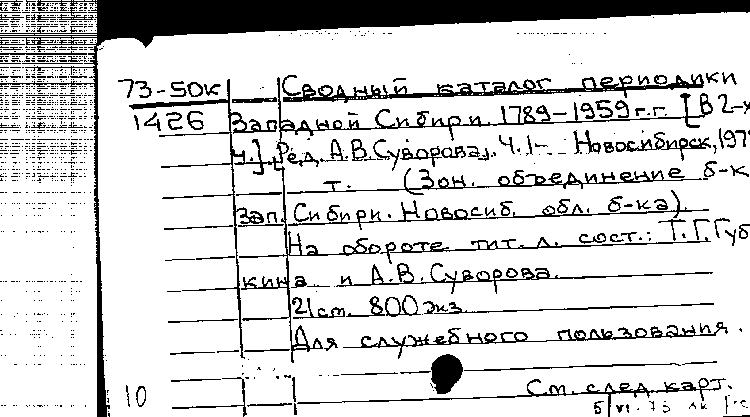 73-50к Сводный каталог периодики
1426 Западной Сибири 1789-1959 г.г. [В 2-х
ч.]. Ред. А.В.Суворова. Ч.1- Новосибирск, 197
т. (Зон. объединение б-к
Зап. Сибири. Новосиб. обл. б-ка).
На обороте тит. л. сост.: Т.Г.Губ
кина и А.В.Суворова.
21 см. 800 экз.
Для служебного пользования.
10 См. след. карт.